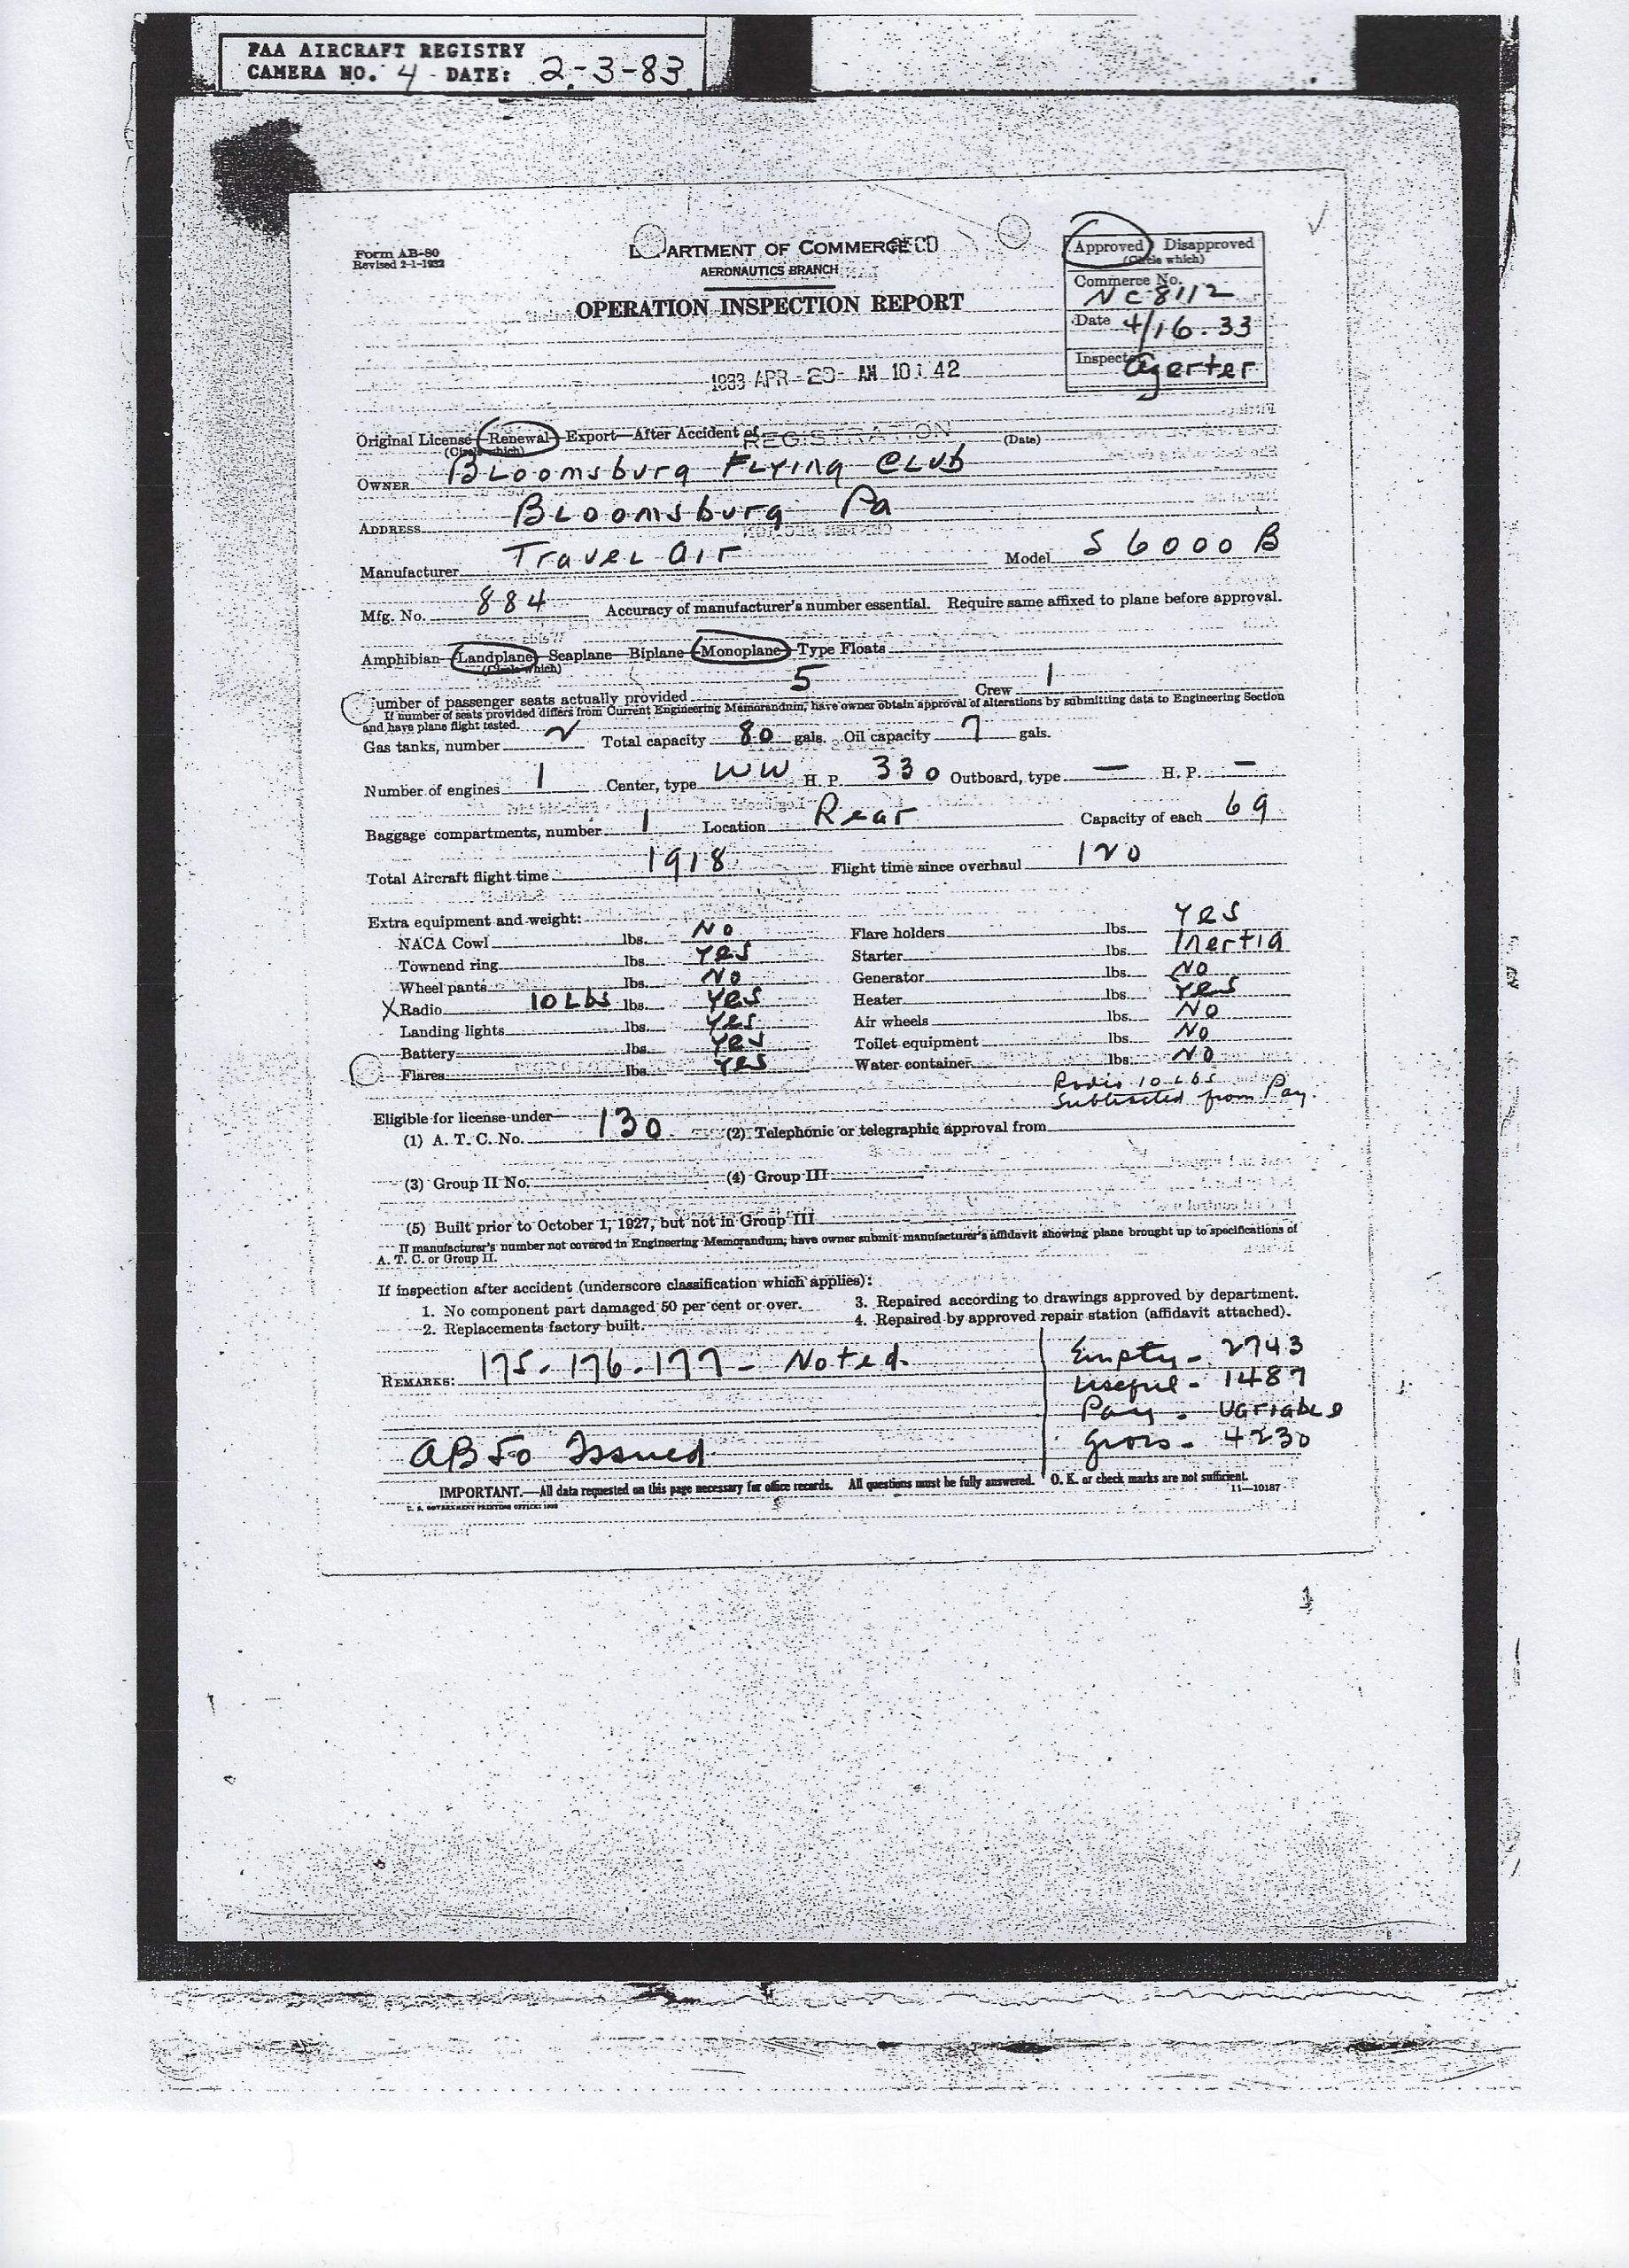 FAA AIRCRAFT REGISTRY
CAMERA NO. 4 DATE: 2-3-83
Form AB-80
Revised 2-1-1932
DEPARTMENT OF COMMERCE
AERONAUTICS BRANCH
OPERATION INSPECTION REPORT
Approved Disapproved
(Circle which)
Commerce No.
NC8112
Date 4/16.33
Inspector Agerter
1933 APR 20 AM 10:42
Original License—Renewal—Export—After Accident of (Date)
REGISTRATION
(Circle which)
OWNER Bloomsburg Flying Club
ADDRESS Bloomsburg Pa
Manufacturer Travel Air Model S 6000 B
Mfg. No. 884 Accuracy of manufacturer's number essential. Require same affixed to plane before approval.
Amphibian—Landplane—Seaplane—Biplane—Monoplane—Type Floats
(Circle which)
umber of passenger seats actually provided 5 Crew 1
If number of seats provided differs from Current Engineering Memorandum, have owner obtain approval of alterations by submitting data to Engineering Section
and have plane flight tested.
Gas tanks, number 2 Total capacity 80 gals. Oil capacity 7 gals.
Number of engines 1 Center, type WW H. P. 330 Outboard, type — H. P. —
Baggage compartments, number 1 Location Rear Capacity of each 69
Total Aircraft flight time 1918 Flight time since overhaul 120
Extra equipment and weight:
NACA Cowl lbs. No Flare holders lbs. Yes
Townend ring lbs. Yes Starter lbs. Inertia
Wheel pants lbs. No Generator lbs. No
X Radio 10 Lbs lbs. Yes Heater lbs. Yes
Landing lights lbs. Yes Air wheels lbs. No
Battery lbs. Yes Toilet equipment lbs. No
Flares lbs. Yes Water container lbs. No
Radio 10 Lbs
Subtracted from Pay.
Eligible for license under—
(1) A. T. C. No. 130 (2) Telephonic or telegraphic approval from
(3) Group II No. (4) Group III
(5) Built prior to October 1, 1927, but not in Group III
If manufacturer's number not covered in Engineering Memorandum, have owner submit manufacturer's affidavit showing plane brought up to specifications of
A. T. C. or Group II.
If inspection after accident (underscore classification which applies):
1. No component part damaged 50 per cent or over. 3. Repaired according to drawings approved by department.
2. Replacements factory built. 4. Repaired by approved repair station (affidavit attached).
REMARKS: 175-176-177- Noted.
Empty - 2743
Useful - 1487
Pay - Variable
Gross - 4230
AB 50 Issued
IMPORTANT.—All data requested on this page necessary for office records. All questions must be fully answered. O. K. or check marks are not sufficient.
U. S. GOVERNMENT PRINTING OFFICE: 11—10187